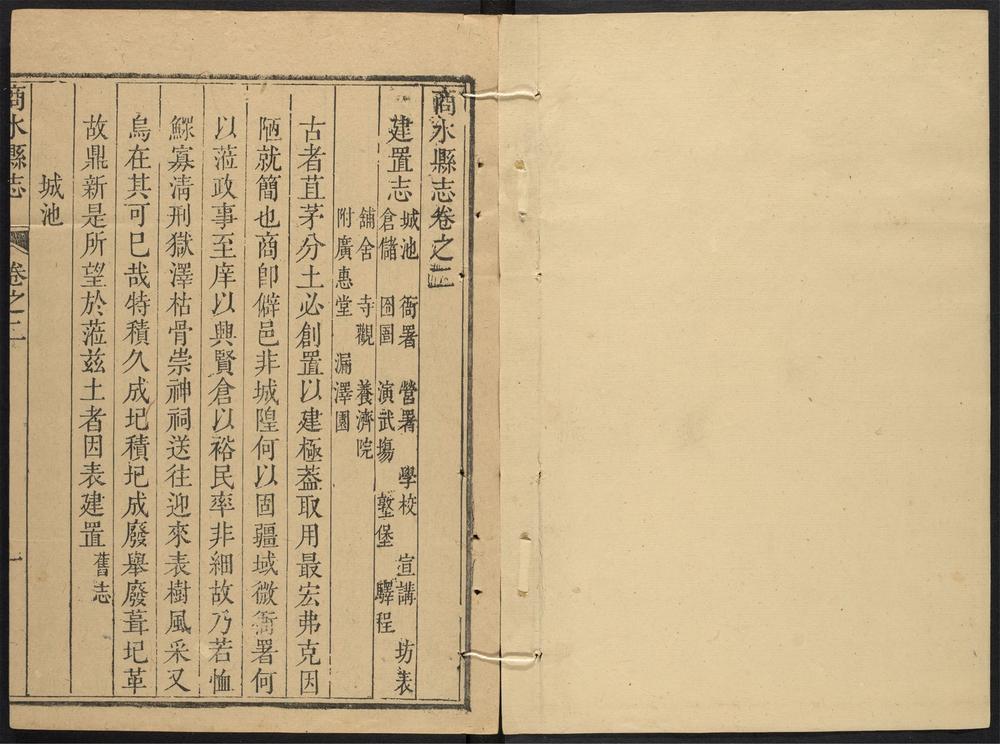 商水縣志卷之二
建置志
城池 衙署 營署 學校 宣講 坊表
倉儲 囹圄 演武塲 墪堡 驛程
舖舍 寺觀 養濟院
附廣惠堂 漏澤園
古者苴茅分土必創置以建極葢取用最宏弗克因
陋就簡也商卽僻邑非城隍何以固疆域微衙署何
以蒞政事至庠以興賢倉以裕民率非細故乃若恤
鰥寡清刑獄澤枯骨崇神祠送往迎來表樹風采又
烏在其可已哉特積久成圮積圮成廢舉廢葺圮革
故鼎新是所望於蒞兹土者因表建置 舊志
城池
商水縣志 卷之二 一